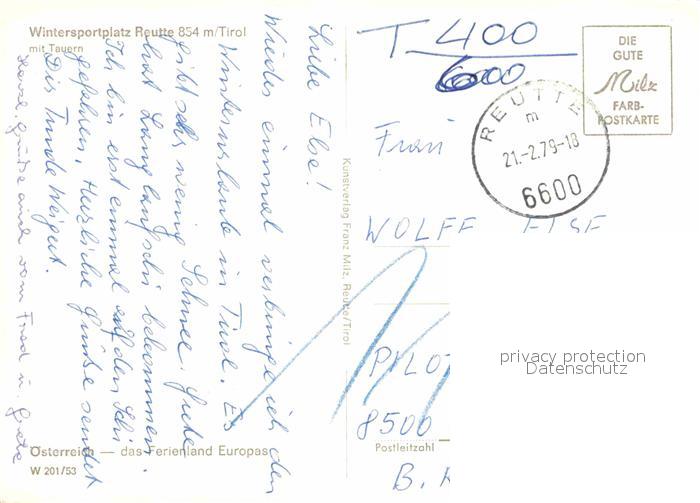 Wintersportplatz Reutte 854 m/Tirol
mit Tauern
Liebe Else!
Wieder einmal verbringe ich den
Winterurlaub in Tirol. Es
gibt sehr wenig Schnee. Gute
hat Langlaufschi bekommen.
Ich bin erst einmal auf den Schi
gefahren. Herzliche Grüße sendet
Dir Trude Weigert.
Herzl. Grüße auch von Fred u. Grete
Österreich — das Ferienland Europas
W 201/53
Kunstverlag Franz Milz, Reutte/Tirol
T 400
600
DIE
GUTE
Milz
FARB-
POSTKARTE
REUTTE
m
21.-2.79-18
6600
Frau
WOLFF ELSE
PILO
8500
Postleitzahl
B.
privacy protection
Datenschutz